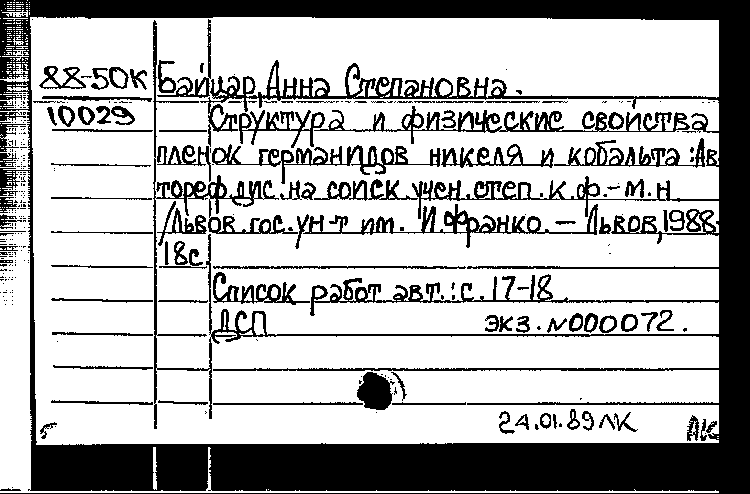 88-50К Байцар, Анна Степановна.
10029 Структура и физические свойства
пленок германидов никеля и кобальта: Ав-
тореф. дис. на соиск. учен. степ. к.ф.-м.н
/Львов. гос. ун-т им. И. Франко. — Львов, 1988-
18с.
Список работ авт.: с. 17-18
ДСП экз. N000072.
24.01.89 ЛК